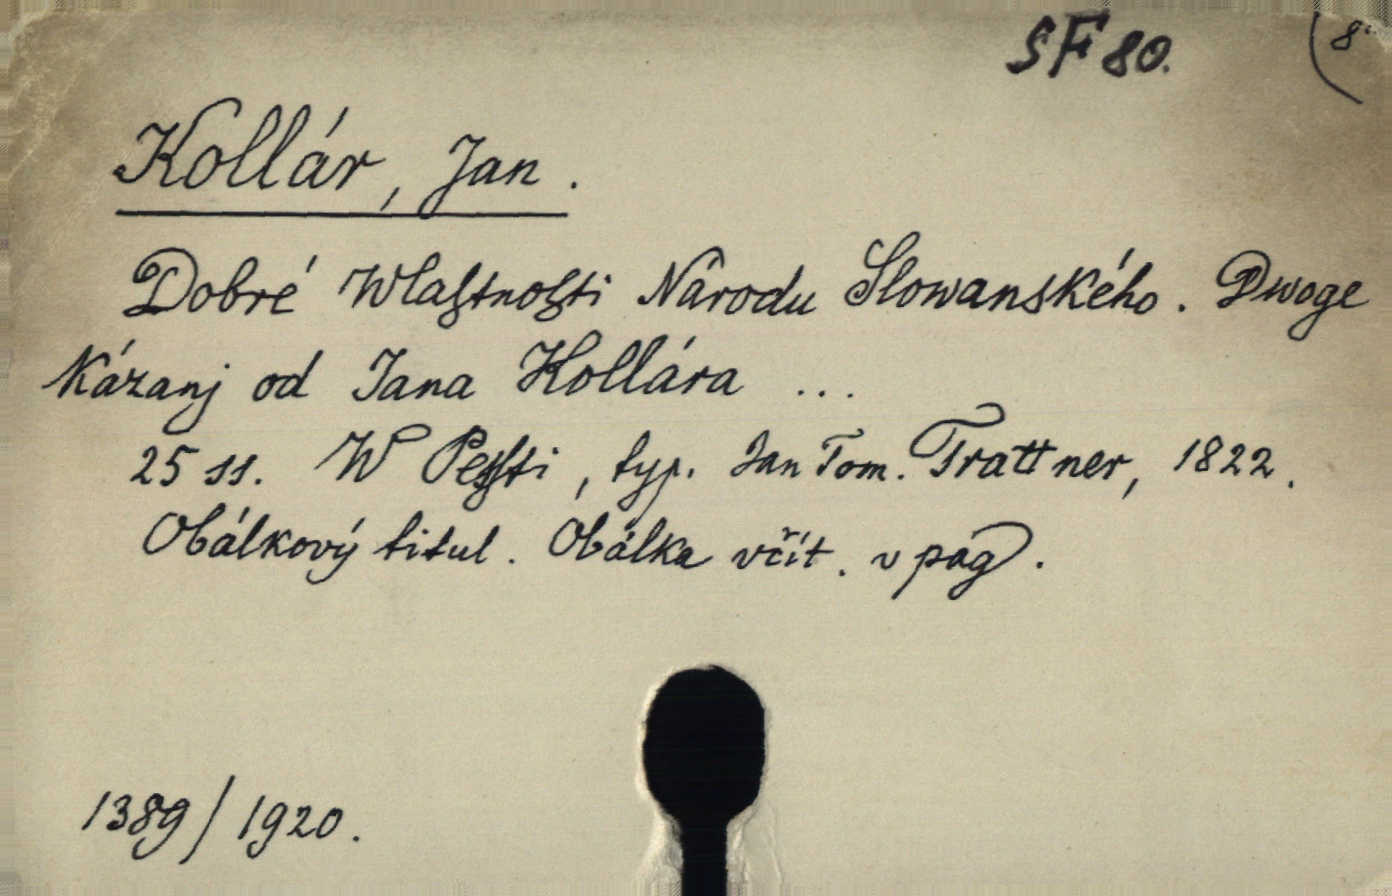 SF 80. (8°
Kollár, Jan.
Dobré Wlaſtnoſti Národu Slowanského. Dwoge
Kázanj od Jana Kollára ...
25 ss. W Peſſti, typ. Jan Tom. Trattner, 1822.
Obálkový titul. Obálka včít. v pag.
1389/1920.